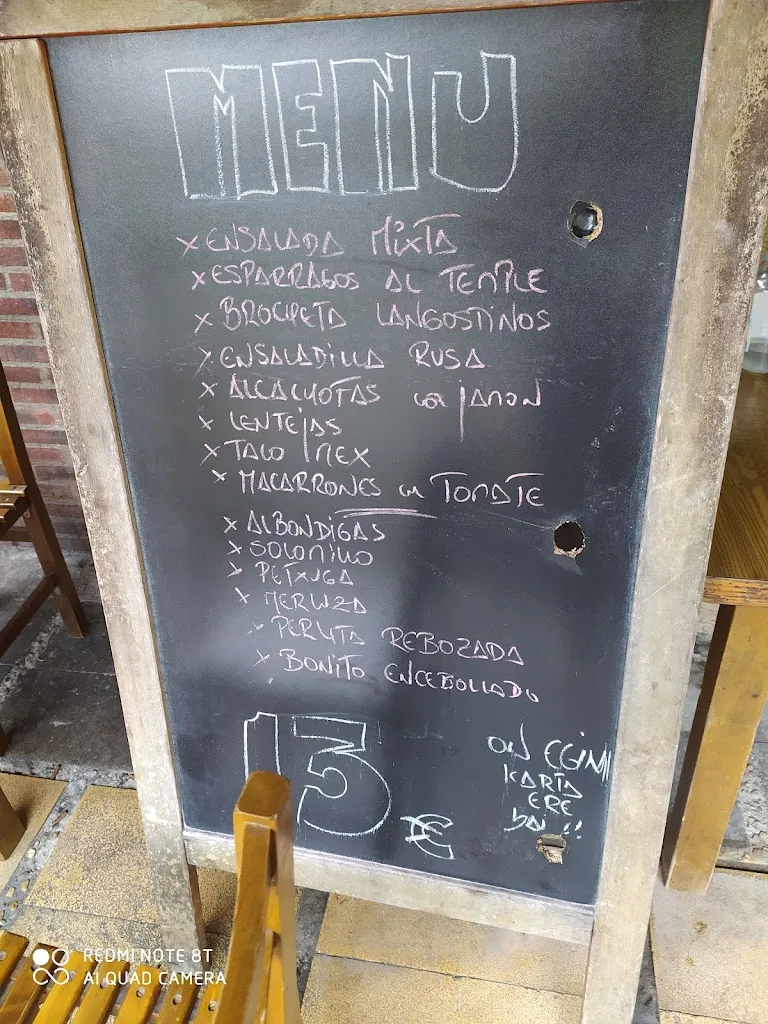 MENU
x ENSALADA MIXTA
x ESPARRAGOS AL TEMPLE
x BROCHETA LANGOSTINOS
x ENSALADILLA RUSA
x ALCACHOFAS con jAMON
x LENTEjAS
x TACO MEX
x MACARRONES con TOMATE
x ALBONDIGAS
x SOLOMILLO
x PETXUGA
x MERLUZA
x PERLITA REBOZADA
x BONITO ENCEBOLLADO
13 €
ON EGIN
KARTA
ERE
bAI !!
REDMI NOTE 8T
AI QUAD CAMERA